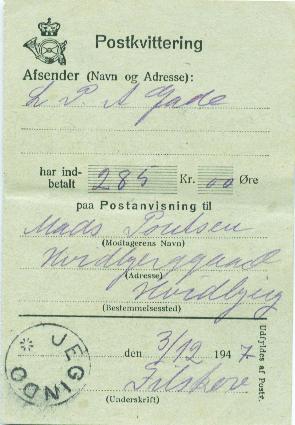 Postkvittering
Afsender (Navn og Adresse):
L P A Gade
har ind-
betalt 285 Kr. 00 Øre
paa Postanvisning til
Mads Poulsen
(Modtagerens Navn)
Hvidbjerggaard
(Adresse)
Hvidbjerg
(Bestemmelsessted)
JEGINDO
den 3/12 1947
(Underskrift)
Udfyldes af Postv.